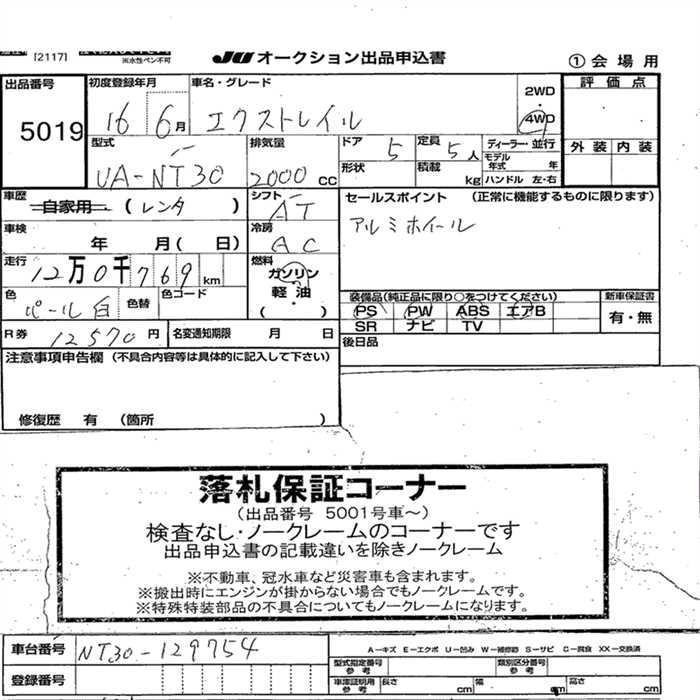 [2117]
※水性ペン不可
JU オークション出品申込書
①会場用
出品番号 5019
初度登録年月 16 6月
車名・グレード エクストレイル
2WD・4WD
評価点
外装 内装
型式 UA-NT30
排気量 2000 CC
ドア 5
定員 5人
形状
積載 kg
ディーラー・並行
モデル年式 年
ハンドル 左・右
車歴 自家用 (レンタ)
シフト AT
セールスポイント (正常に機能するものに限ります)
アルミホイール
車検 年 月(日)
冷房 AC
走行 12万0千769km
燃料 ガソリン 軽・油 ( )
色 パール白
色替
色コード
装備品(純正品に限り○をつけてください)
PS PW ABS エアB
SR ナビ TV
新車保証書 有・無
R券 12570円
名変通知期限 月 日
後日品
注意事項申告欄 (不具合内容等は具体的に記入して下さい)
修復歴 有 (箇所 )
落札保証コーナー
(出品番号 5001号車〜)
検査なし・ノークレームのコーナーです
出品申込書の記載違いを除きノークレーム
※不動車、冠水車など災害車も含まれます。
※搬出時にエンジンが掛からない場合でもノークレームです。
※特殊特装部品の不具合についてもノークレームになります。
車台番号 NT30-129754
A-キズ E-エクボ U-凹み W-補修跡 S-サビ C-腐食 XX-交換済
型式指定番号 参考
類別区分番号 参考
登録番号
車庫証明用 参考
長さ cm
幅 cm
高さ cm